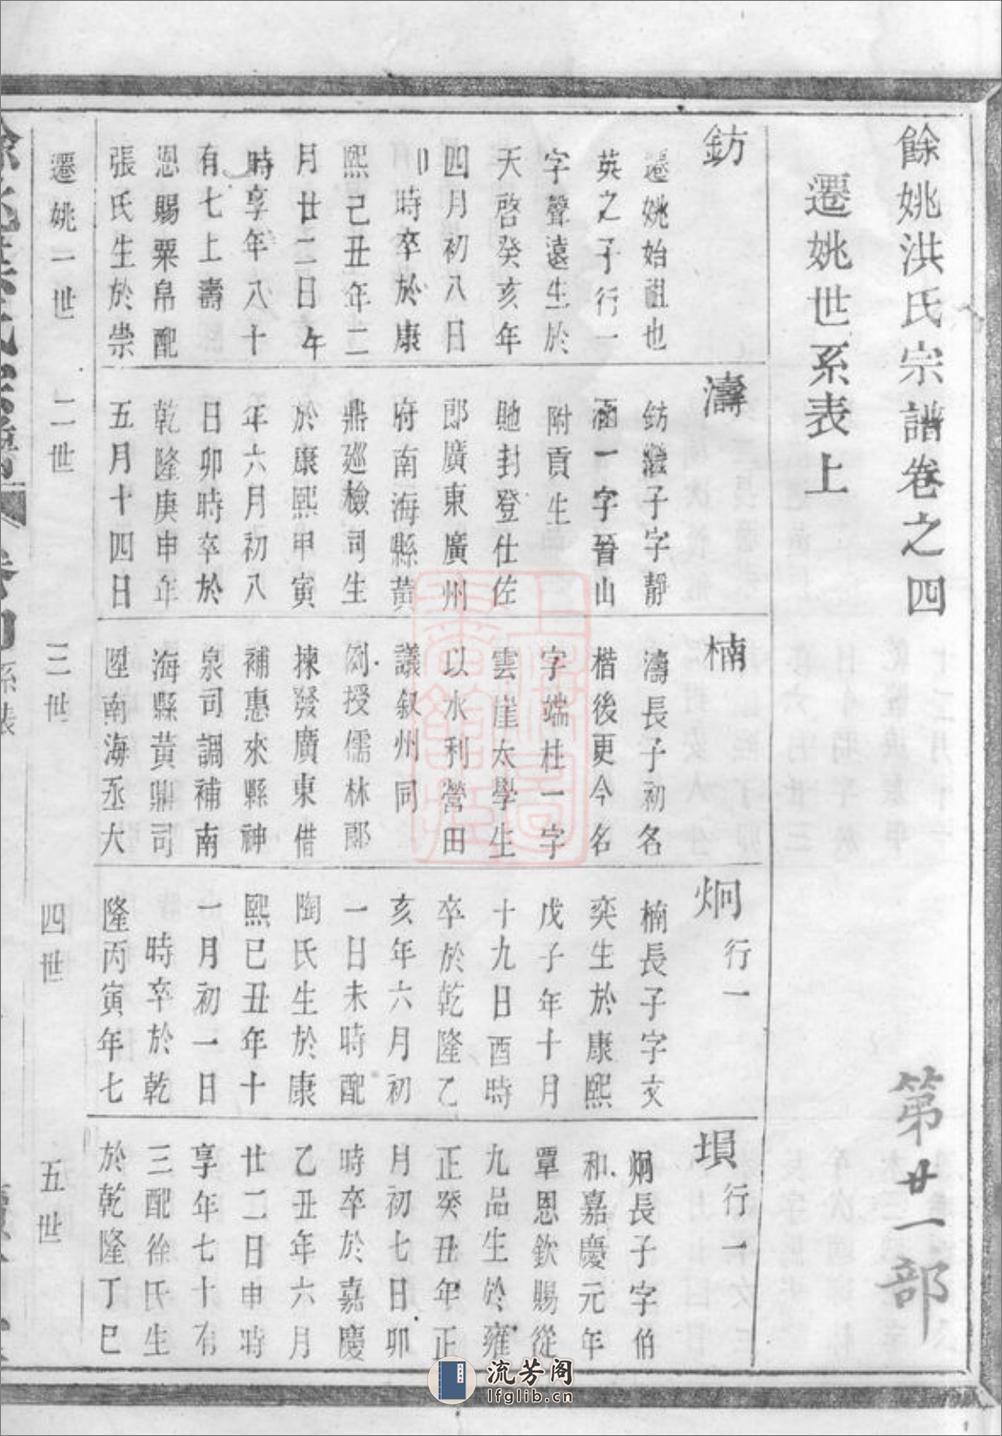 餘姚洪氏宗譜卷之四
第廿一部
遷姚世系表上
鈁
遷姚始祖也
英之子行一
字聲遠生於
天啓癸亥年
四月初八日
卯時卒於康
熙己丑年二
月廿二日午
時享年八十
有七上壽
恩賜粟帛配
張氏生於崇
遷姚一世
濤
鈁子字靜
涵一字晉山
附貢生
貤封登仕佐
郎廣東廣州
府南海縣黃
鼎巡檢司生
於康熙甲寅
年六月初八
日卯時卒於
乾隆庚申年
五月十四日
二世
楠
濤長子初名
楷後更今名
字端杜一字
雲崖太學生
以水利營田
議敘州同
例授儒林郎
揀發廣東借
補惠來縣神
泉司調補南
海縣黃鼎司
陞南海丞大
三世
炯 行一
楠長子字文
奕生於康熙
戊子年十月
十九日酉時
卒於乾隆乙
亥年六月初
一日未時配
陶氏生於康
熙己丑年十
一月初一日
時卒於乾
隆丙寅年七
四世
塤 行一
炯長子字伯
和嘉慶元年
覃恩欽賜從
九品生於雍
正癸丑年正
月初七日卯
時卒於嘉慶
乙丑年六月
廿二日申時
享年七十有
三配徐氏生
於乾隆丁巳
五世
流芳阁
lfglib.cn